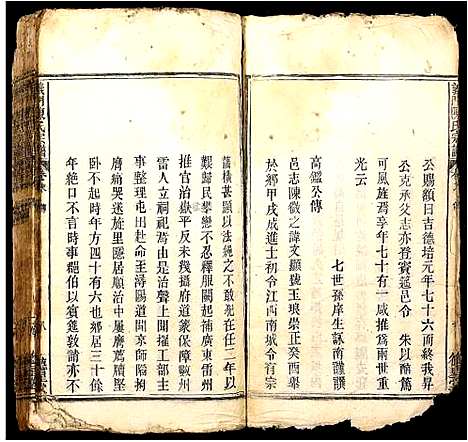 公賜額曰吉德培元年七十六而終我昇
公克承父志亦登賓筵邑令 朱以酩篤
可風旌焉享年七十有一咸推為兩世重
光云
七世孫庠生詠南謹譔
高鑑公傳
邑志陳徵之諱文顯號玉琅崇正癸酉舉
於鄉甲戌成進士初令江西南城令有宗
藩橫甚顯以法繩之不敢肆在任二年以
艱歸民攀轅不忍釋服闋起補廣東雷州
官治獄平反未幾擢府道篆保障歐州
雷人立祠祀焉當是時治聲上聞擢工部主
事時屯田赴命王潯陽道聞京師陷輒
齊痛哭遂旋里隱居順治中屢薦膺牘堅
臥不起時年方四十有六也鄉居三十餘
年絕口不言時事穆伯以賓筵敦請亦不
義門陳氏宗譜
八